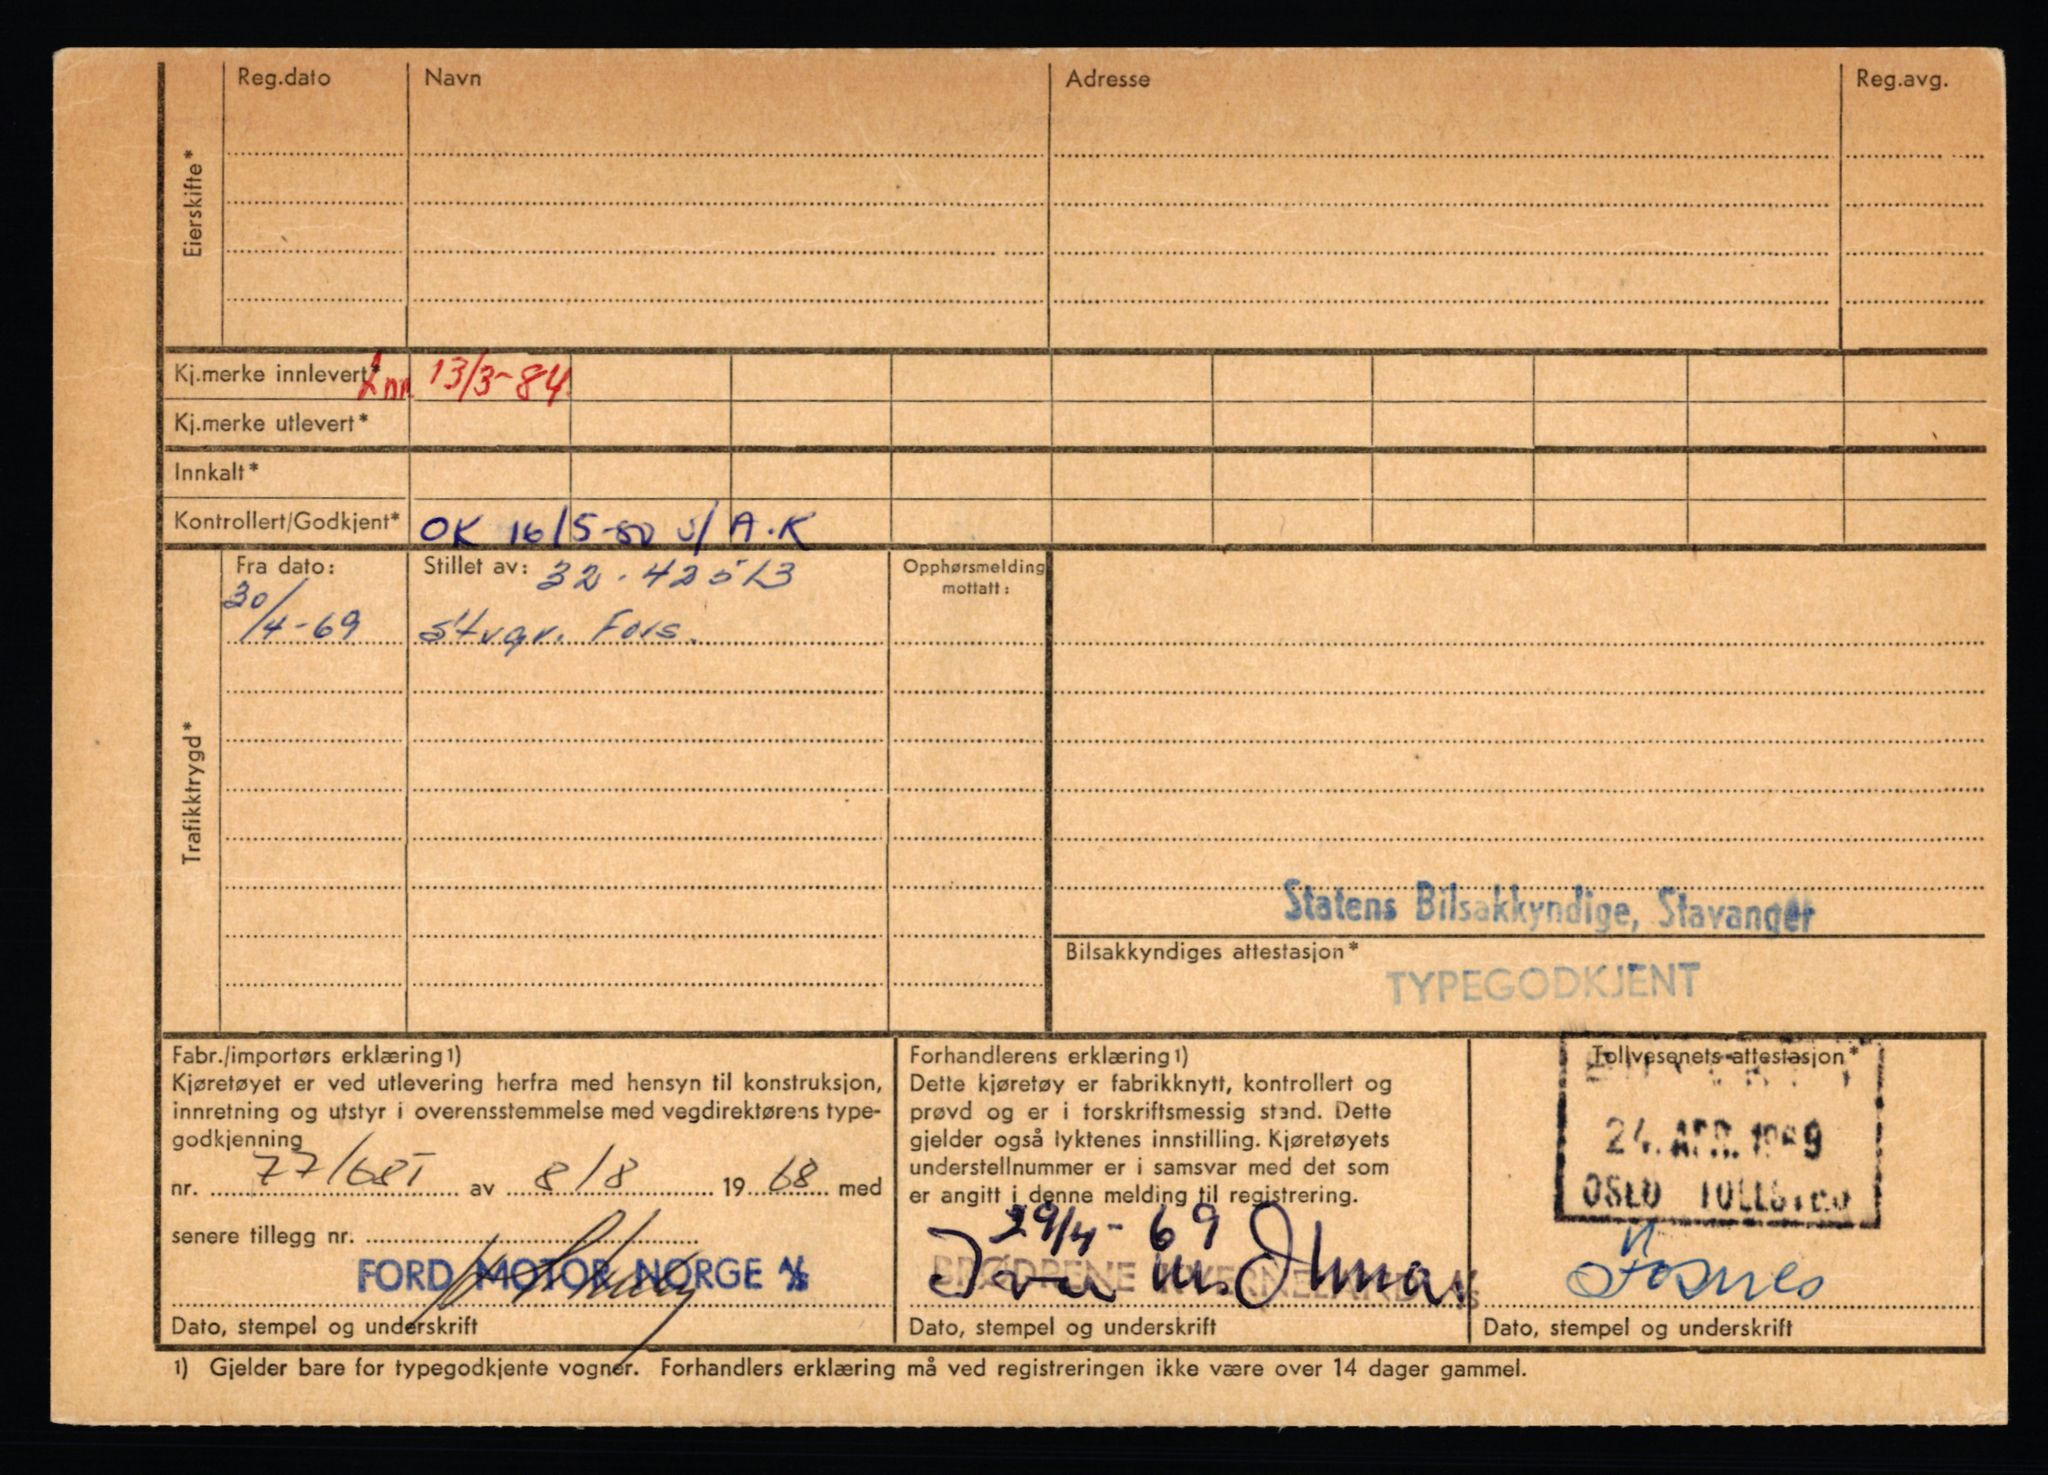 Reg.dato Navn Adresse Reg.avg.
Eierskifte*
Kj.merke innlevert* Inn 13/3-84
Kj.merke utlevert*
Innkalt*
Kontrollert/Godkjent* OK 16/5-80 v/ A.K
Fra dato: Stillet av: 32-42513 Opphørsmelding mottatt:
30/4-69 Stvgr. Fors.
Trafikktrygd*
Statens Bilsakkyndige, Stavanger
Bilsakkyndiges attestasjon*
TYPEGODKJENT
Fabr./importørs erklæring1)
Kjøretøyet er ved utlevering herfra med hensyn til konstruksjon,
innretning og utstyr i overensstemmelse med vegdirektørens type-
godkjenning
nr. 77/68I av 8/8 1968 med
senere tillegg nr.
FORD MOTOR NORGE A/S
Dato, stempel og underskrift
Forhandlerens erklæring1)
Dette kjøretøy er fabrikknytt, kontrollert og
prøvd og er i forskriftsmessig stand. Dette
gjelder også lyktenes innstilling. Kjøretøyets
understellnummer er i samsvar med det som
er angitt i denne melding til registrering.
29/4-69
BRØDRENE KVERNELAND A/S
Dato, stempel og underskrift
Tollvesenets attestasjon*
24. APR. 1969
OSLO TOLLSTED
Dato, stempel og underskrift
1) Gjelder bare for typegodkjente vogner. Forhandlers erklæring må ved registreringen ikke være over 14 dager gammel.